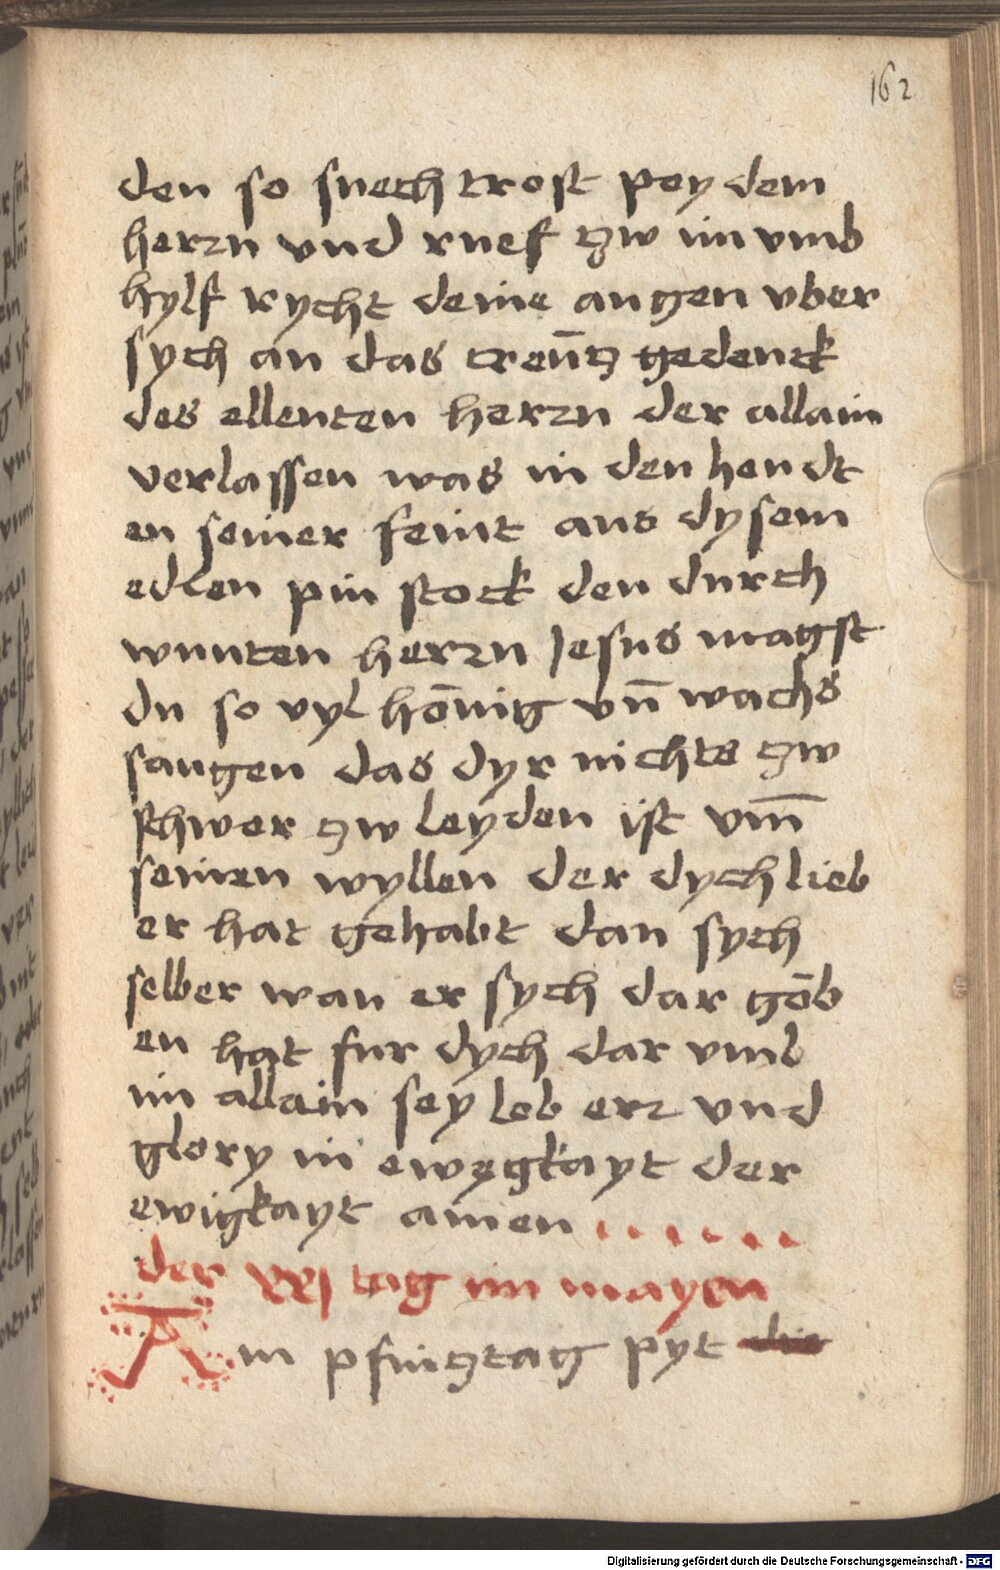 162
den so suech trost pey dem
herrn vnd ruef zw im vmb
hylf rycht deine augen vber
sych an das creūtz gedenck
des ellenten herrn der allain
verlassen was in den hendt
en seiner feint aus dysem
edlen pin stock den durch
wunten herrn Jesus magst
du so vyl hōnig vn̄ wachs
saugen das dyr nichts zw
schwer zw leyden ist vm̄
seinen wyllen der dych lieb
er hat gehabt dan sych
selber wan er sych dar gōb
en hat fur dych dar vmb
im allain sey lob err vnd
glory in ewegkayt der
ewigkayt amen . . . . . .
der xxj tag im mayen
Am pfinztag pyt die
Digitalisierung gefördert durch die Deutsche Forschungsgemeinschaft - DFG